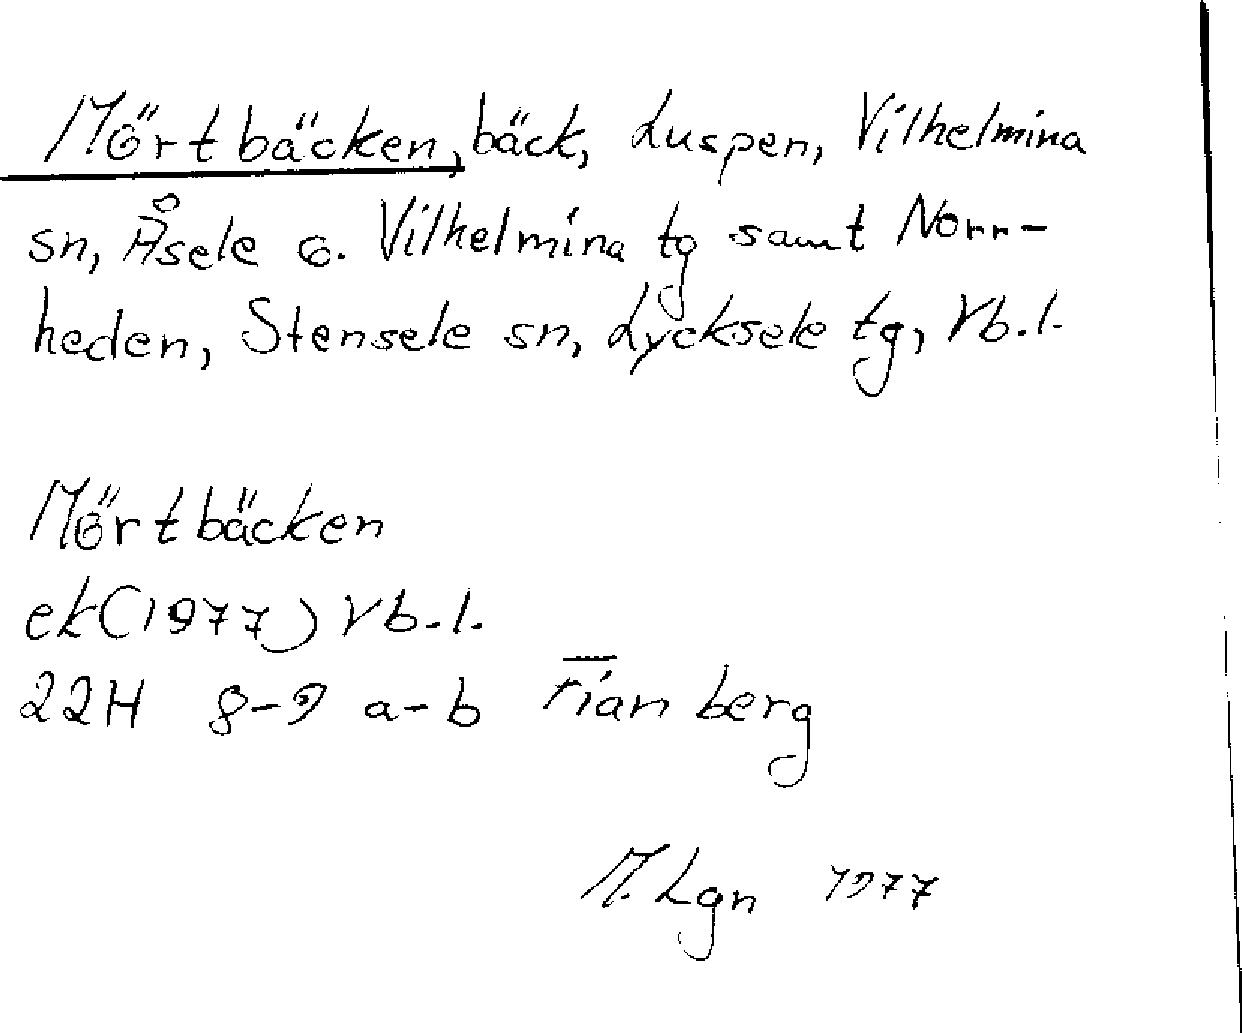 Mörtbäcken, bäck, Luspen, Vilhelmina
sn, Åsele o. Vilhelmina tg samt Norr-
heden, Stensele sn, Lycksele tg, Vb.l.
Mörtbäcken
ek(1977) Vb.l.
22H 8-9 a-b Fianberg
M.Lgn 1977